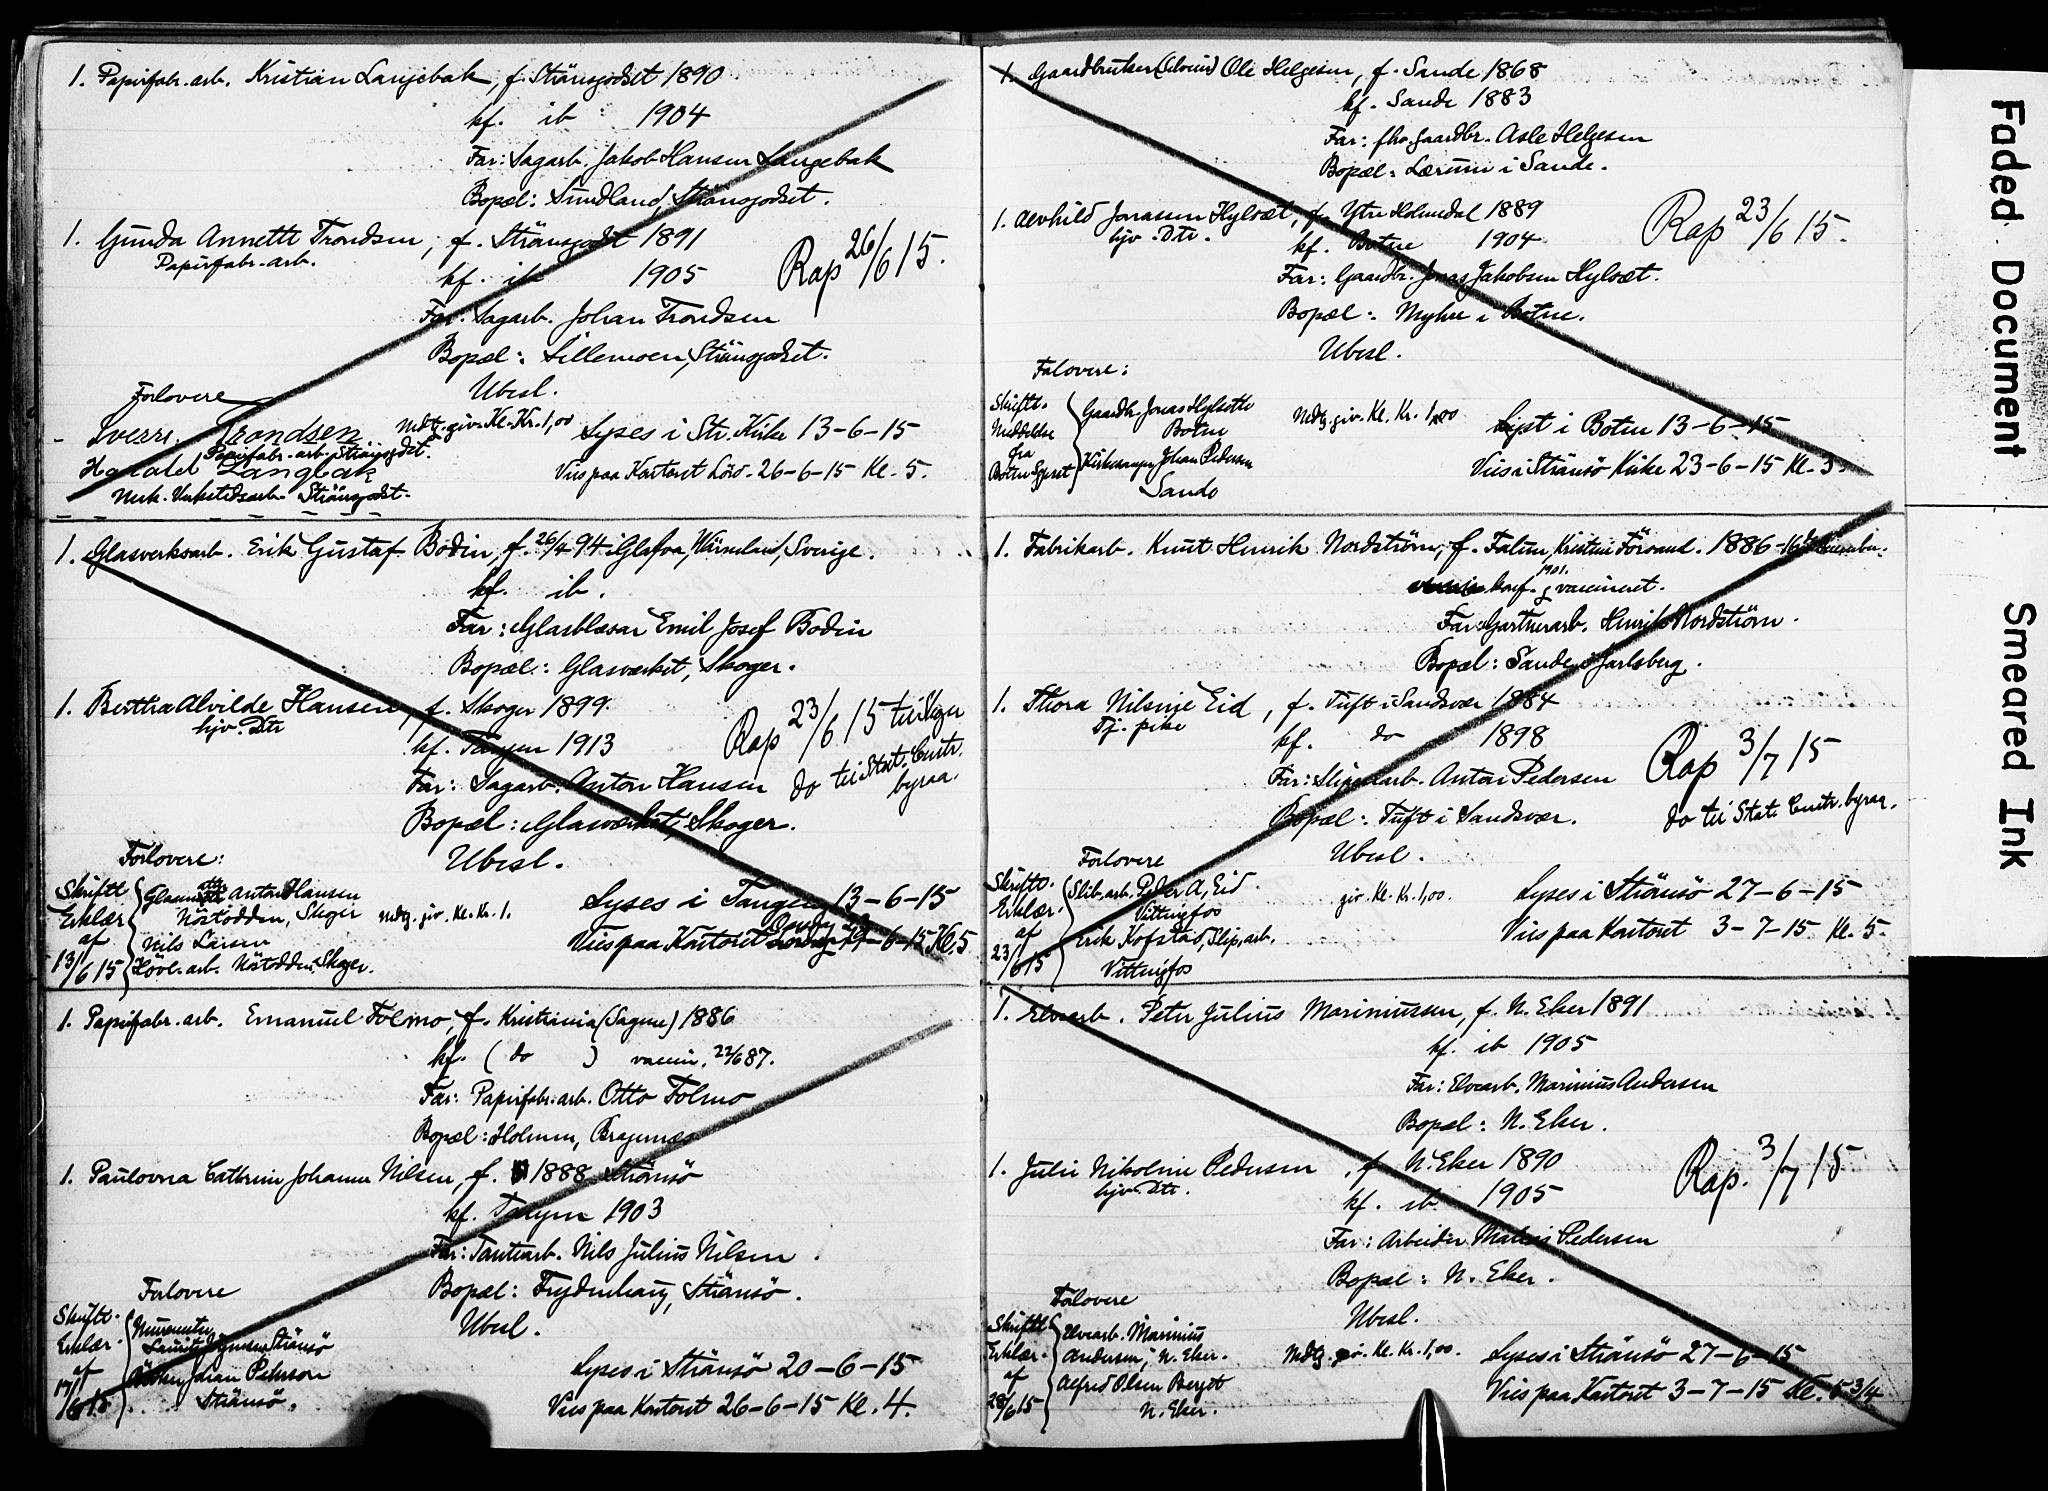 1. Papirfabr. arb. Kristian Langebak, f. Strømsgodset 1890
kf. ib 1904
Far: Sagarb. Jakob Hansen Langebak
Bopæl: Sundland, Strømsgodset.
1. Gunda Annette Trondsen, f. Strømsgodset 1891
Papirfabr. arb.
kf. ib 1905
Rap 26/6 15.
Far: Sagarb. Johan Trondsen
Bopæl: Lillemoen, Strømsgodset.
Ubesl.
Forlovere
Sverre Trondsen
Papirfabr. arb. Strömsgodset.
Harald Langbak
Verkstedsarb. Strömsgodset.
Mdtg. giv. Kl. Kr. 1,00
Lyses i Str. Kirke 13-6-15
Vies paa Kontoret Lörd. 26-6-15 Kl. 5.
1. Glasverksarb. Erik Gustaf Bodin, f. 26/4 94 i Glafva, Wärmeland, Sverige.
kf. ib.
Far: Glasblæsar Emil Josef Bodin
Bopæl: Glasværket, Skoger.
1. Berthea Alvilde Hansen, f. Skoger 1899.
hjv. Dtr
kf. Tangen 1913
Rap 23/6 15 til Skoger
do til Stat. Centr. byraa.
Far: Sagarb. Anton Hansen
Bopæl: Glasværket, Skoger.
Ubesl.
Forlovere:
Skriftl. Erklær. af 13/6 15
Anton Hansen
Nötodden, Skoger
Nils Larsen
Hövl. arb. Nötodden, Skoger.
mdtg. giv. Kl. Kr. 1.
Lyses i Tangen 13-6-15
Vies paa Kontoret Onsdag 23-6-15 Kl. 5
1. Papirfabr. arb. Emanuel Folmo, f. Kristiania (Sagene) 1886
kf. (do) vaccin. 22/6 87.
Far: Papirfabr. arb. Otto Folmo
Bopæl: Holmen, Bragernæs
1. Paulovna Cathrine Johanne Nilsen, f. 1888 Strømsö
kf. Tangen 1903
Far: Tomtearb. Nils Julius Nilsen.
Bopæl: Frydenhaug, Strömsö.
Ubesl.
Forlovere
Skriftl. Erklær. af 17/6 15
Murmester
Lauritz Jensen Strömsö
Johan Peterson
Strömsö.
Lyses i Strömsö 20-6-15
Vies paa Kontoret 26-6-15 Kl. 4.
1. Gaardbruker (Selveier) Ole Helgesen, f. Sande 1868
kf. Sande 1883
Far: fhv. Gaardbr. Asle Helgesen
Bopæl: Lærum i Sande.
1. Alvhild Jonassen Hylvæt, f. Ytre Holmedal 1889
hjv. Dtr.
kf. Botne 1904
Rap 23/6 15.
Far: Gaardbr. Jonas Jakobsen Hylvæt.
Bopæl: Myhre i Botne.
Ubesl.
Forlovere:
Skriftl. Meddelse fra Botne Sgprst
Gaardbr. Jonas Hylvette
Botne
Kirkesanger Johan Pedersen
Sande
Mdtg. giv. Kl. Kr. 1,00
Lyst i Botne 13-6-15
Vies i Strömsö Kirke 23-6-15 Kl. 3.
1. Fabrikarb. Knut Henrik Nordström, f. Falun, Kristine Församl. 1886-16 Decembr.
konf. 1901. g vaccineret.
Far: Gartnerarb. Henrik Nordström.
Bopæl: Sande i Jarlsberg.
1. Thora Nilsine Eid, f. Tuft i Sandsvær 1884
Tj. pike
kf. do 1898
Rap 3/7 15
do til Stati. Centr. byraa.
Far: Slipearb. Anton Pedersen
Bopæl: Tuft i Sandsvær.
Ubesl.
Forlovere
Skriftl. Erklær. af 23/6 15
Slib. arb. Peder A. Eid.
Vittingfos
Erik Kofstad, Slip. arb.
Vittingfos
giv. Kl. Kr. 1,00.
Lyses i Strömsö 27-6-15
Vies paa Kontoret 3-7-15 Kl. 5.
1. Elvearb. Peter Julius Marinussen, f. N. Eker 1891
kf. ib 1905
Far: Elvearb. Marinius Andersen
Bopæl: N. Eker.
1. Julie Nikoline Pedersen, f. N. Eker 1890
hjv. Dtr.
kf. ib. 1905
Rap. 3/7 15
Far: Arbeider Pedersen
Bopæl: N. Eker.
Ubesl.
Forlovere
Skriftl. Erklær. af 28/6 15
Elvearb. Marinius
Andersen, N. Eker.
Alfred Olsen Berget
N. Eker.
Mdtg. giv. Kl. Kr. 1,00.
Lyses i Strömsö 27-6-15
Vies paa Kontoret 3-7-15 Kl. 5 3/4
Faded Document
Smeared Ink